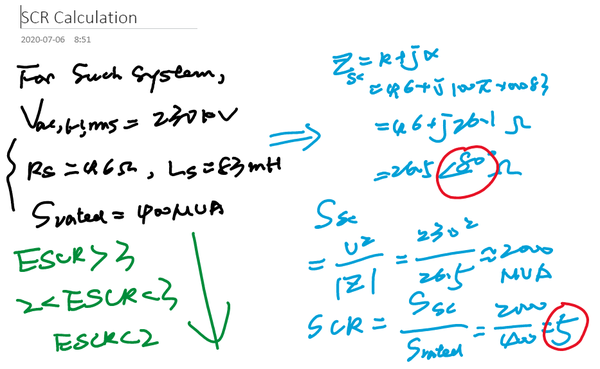 SCR Calculation
2020-07-06 8:51
For such system,
Vac,l-l,rms = 230kV
Rs = 4.6Ω, Ls = 83mH
Srated = 400MVA
ESCR > 3
2 < ESCR < 3
ESCR < 2
Zsc = R + jX
= 4.6 + j 100π × 0.083
= 4.6 + j 26.1 Ω
= 26.5 ∠80° Ω
Ssc
= U²/|Z| = 230²/26.5 ≈ 2000 MVA
SCR = Ssc/Srated = 2000/400 = 5